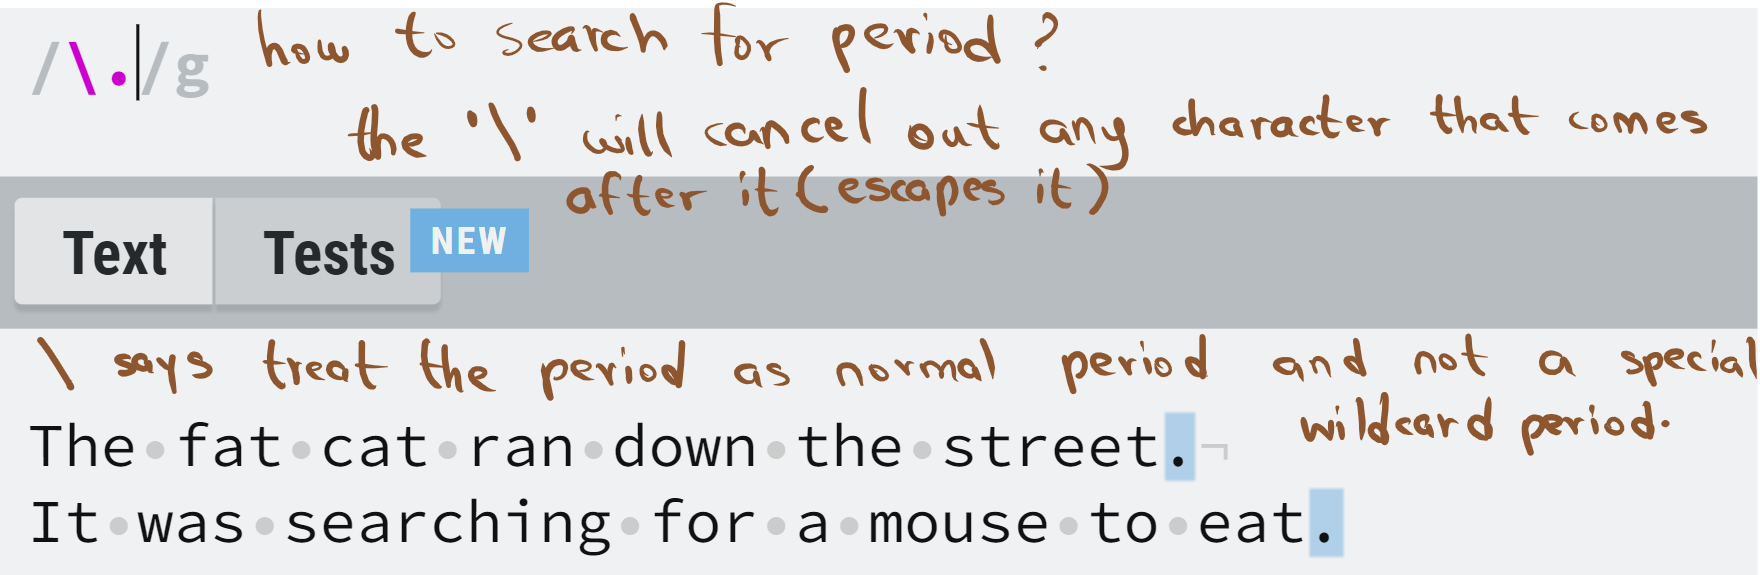 /\./g how to search for period?
the '\' will cancel out any character that comes
after it (escapes it)
Text Tests NEW
\ says treat the period as normal period and not a special
wildcard period.
The·fat·cat·ran·down·the·street.¬
It·was·searching·for·a·mouse·to·eat.